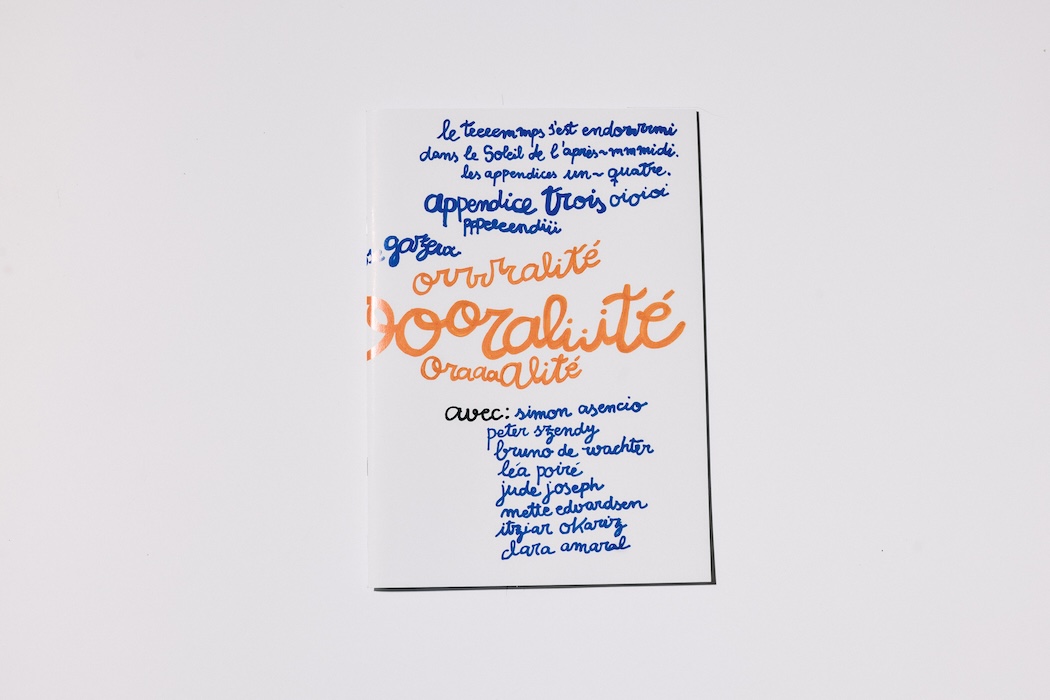 le teeeemmps s'est endorrrmi
dans le Soleil de l'après~mmmidi.
les appendices un~ quatre.
appendice trois oioioi
pppeeendiii
gazera
orrrralité
oooraliiité
oraaaalité
avec: simon asencio
peter szendy
bruno de wachter
léa poiré
jude joseph
mette edvardsen
itziar okariz
clara amaral